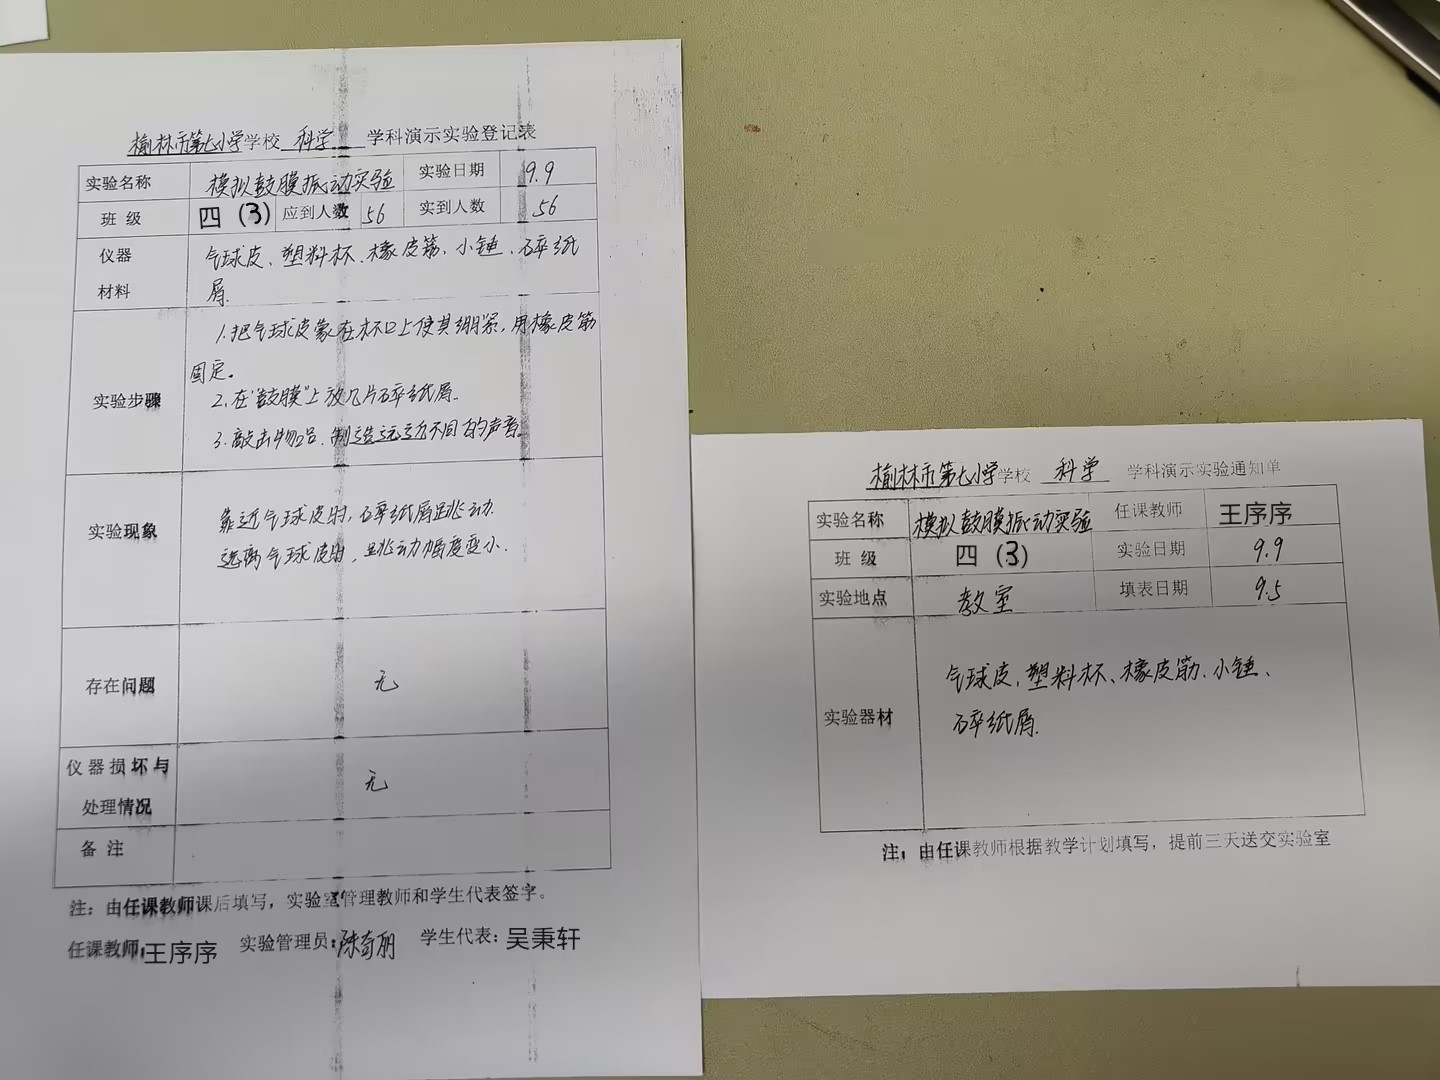 榆林市第七小学学校 科学 学科演示实验登记表
实验名称 模拟鼓膜振动实验 实验日期 9.9
班 级 四 (3) 应到人数 56 实到人数 56
仪器 气球皮、塑料杯、橡皮筋、小锤、碎纸
材料 屑.
1.把气球皮蒙在杯口上使其绷紧,用橡皮筋
固定。
实验步骤
2.在"鼓膜"上放几片碎纸屑.
3.敲击物品.制造远近不同的声音。
实验现象
靠近气球皮时,碎纸屑跳动.
远离气球皮时,跳动幅度变小.
存在问题 无
仪器损坏与
处理情况 无
备 注
注:由任课教师课后填写,实验室管理教师和学生代表签字。
任课教师:王序序 实验管理员:陈奇丽 学生代表:吴秉轩
榆林市第七小学学校 科学 学科演示实验通知单
实验名称 模拟鼓膜振动实验 任课教师 王序序
班 级 四 (3) 实验日期 9.9
实验地点 教室 填表日期 9.5
实验器材
气球皮、塑料杯、橡皮筋、小锤、
碎纸屑.
注:由任课教师根据教学计划填写,提前三天送交实验室